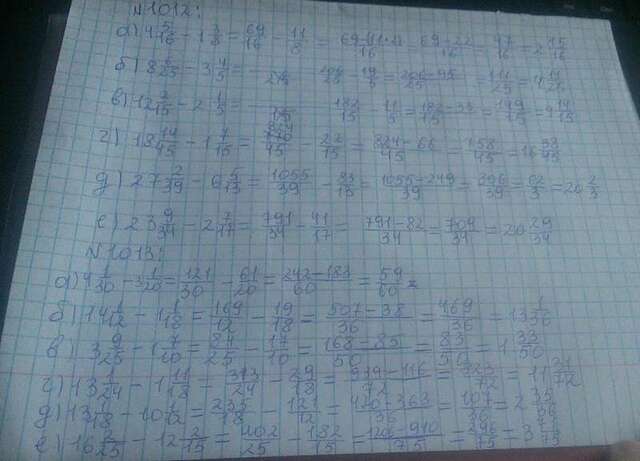 N1012:
а) 4 5/16 - 1 3/8 = 69/16 - 11/8 = 69-11·2/16 = 69-22/16 = 47/16 = 2 15/16
б) 8 6/25 - 3 4/5 = 206/25 - 19/5 = 206-95/25 = 111/25 = 4 11/25
в) 12 2/15 - 2 1/5 = 182/15 - 11/5 = 182-33/15 = 149/15 = 9 14/15
г) 18 14/45 - 1 7/15 = 824/45 - 22/15 = 824-66/45 = 758/45 = 16 38/45
д) 27 2/39 - 6 5/13 = 1055/39 - 83/13 = 1055-249/39 =
е) 23 9/34 - 2 7/17 = 791/34 - 41/17 = 791-82/34 = 709/34 = 20 29/34
N1013:
а) 4 1/30 - 3 1/20 = 121/30 - 61/20 = 242-183/60 = 59/60
б) 14 1/12 - 1 1/18 = 169/12 - 19/18 = 507-38/36 = 469/36 = 13 1/36
в) 3 9/25 - 1 7/10 = 84/25 - 17/10 = 168-85/50 = 83/50 = 1 33/50
г) 13 1/24 - 1 11/18 = 313/24 - 29/18 = 939-116/72 = 823/72 = 11 31/72
д) 10 1/12 = - 121/12 = 363/36 = 107/36 = 2 35/36
е) 16 2/25 - 12 2/15 = 402/25 - 182/15 = 296/75 = 3 71/75